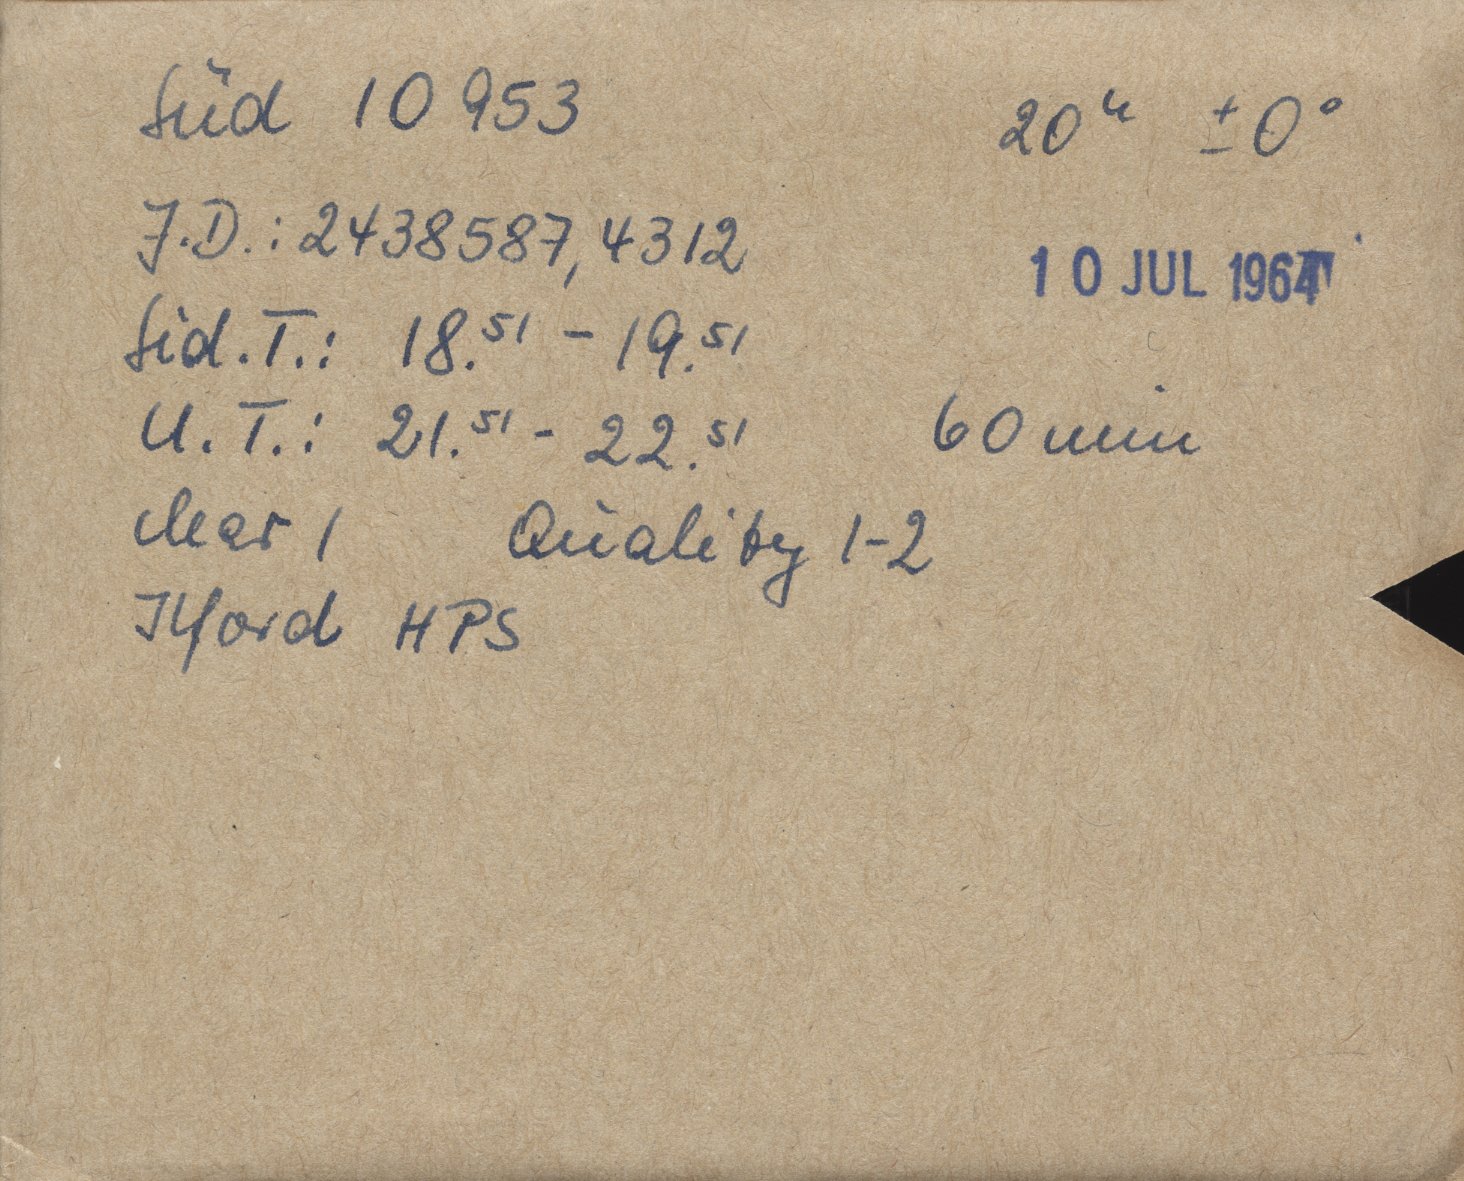 Süd 10953 20ʰ ±0°
J.D.: 2438587,4312
10 JUL 1964
Sid.T.: 18.⁵¹ - 19.⁵¹
U.T.: 21.⁵¹ - 22.⁵¹ 60 min
clear 1 Quality 1-2
Ilford HPS